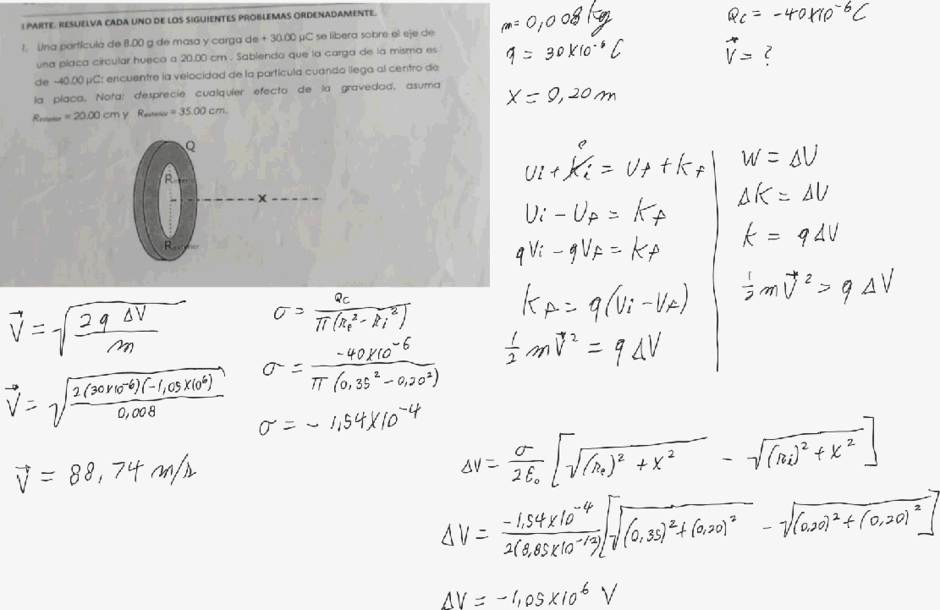 I PARTE. RESUELVA CADA UNO DE LOS SIGUIENTES PROBLEMAS ORDENADAMENTE.
1. Una partícula de 8.00 g de masa y carga de + 30.00 µC se libera sobre el eje de
una placa circular hueca a 20.00 cm . Sabiendo que la carga de la misma es
de -40.00 µC; encuentre la velocidad de la partícula cuando llega al centro de
la placa. Nota: desprecie cualquier efecto de la gravedad, asuma
R = 20.00 cm y R = 35.00 cm.
Q
R
x
R
m = 0,008 kg
Qc = -40x10^-6 C
q = 30x10^-6 C
V⃗ = ?
X = 0,20 m
Ui + Ki = Uf + Kf
Ui - Uf = Kf
qVi - qVf = Kf
Kf = q(Vi - Vf)
1/2 mV⃗² = q ΔV
W = ΔU
ΔK = ΔU
K = qΔV
1/2 mV⃗² = q ΔV
V⃗ = √(2q ΔV / m)
V⃗ = √(2(30x10^-6)(-1,05x10^6) / 0,008)
V⃗ = 88,74 m/s
σ = Qc / π(Re² - Ri²)
σ = -40x10^-6 / π(0,35² - 0,20²)
σ = - 1,54x10^-4
ΔV = σ/2ε₀ [√((Re)² + x²) - √((Ri)² + x²)]
ΔV = -1,54x10^-4 / 2(8,85x10^-12) [√((0,35)² + (0,20)²) - √((0,20)² + (0,20)²)]
ΔV = -1,05x10^6 V